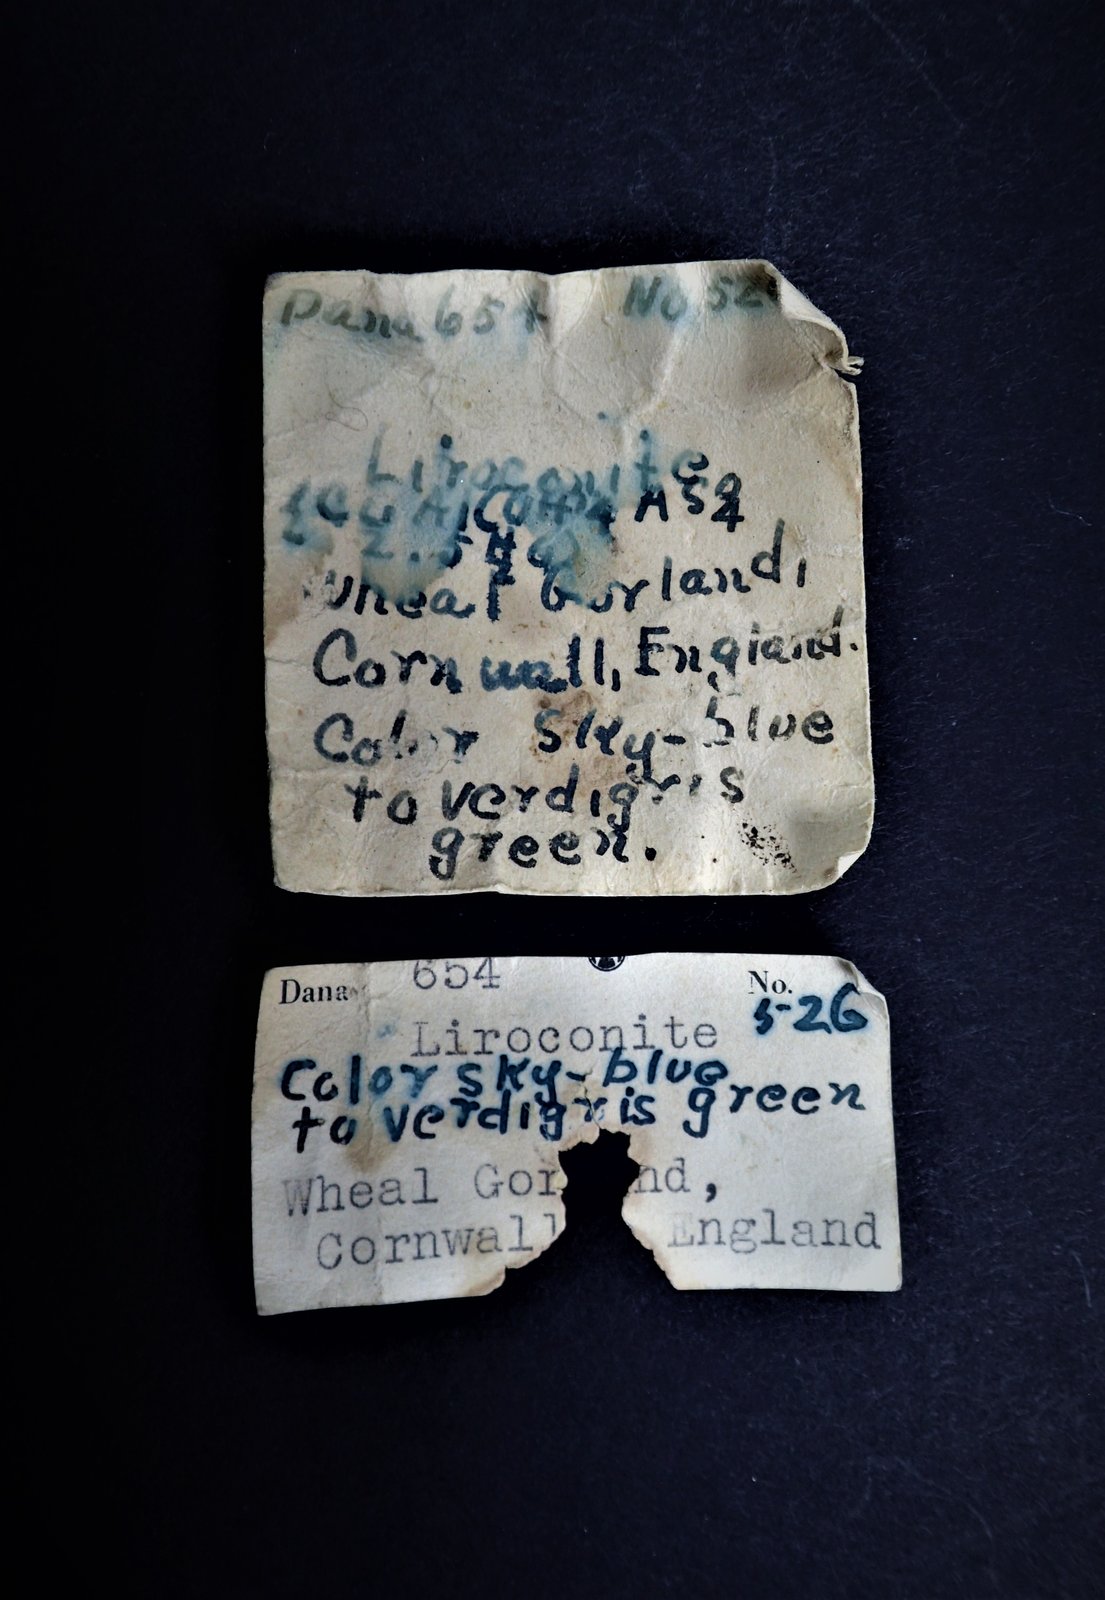 Dana 654 No 52
Liroconite
Wheal Gorland,
Cornwall, England.
Color sky-blue
to verdigris
green.
Dana 654 No.
5-26
Liroconite
Color sky-blue
to verdigris green
Wheal Gor nd,
Cornwall England